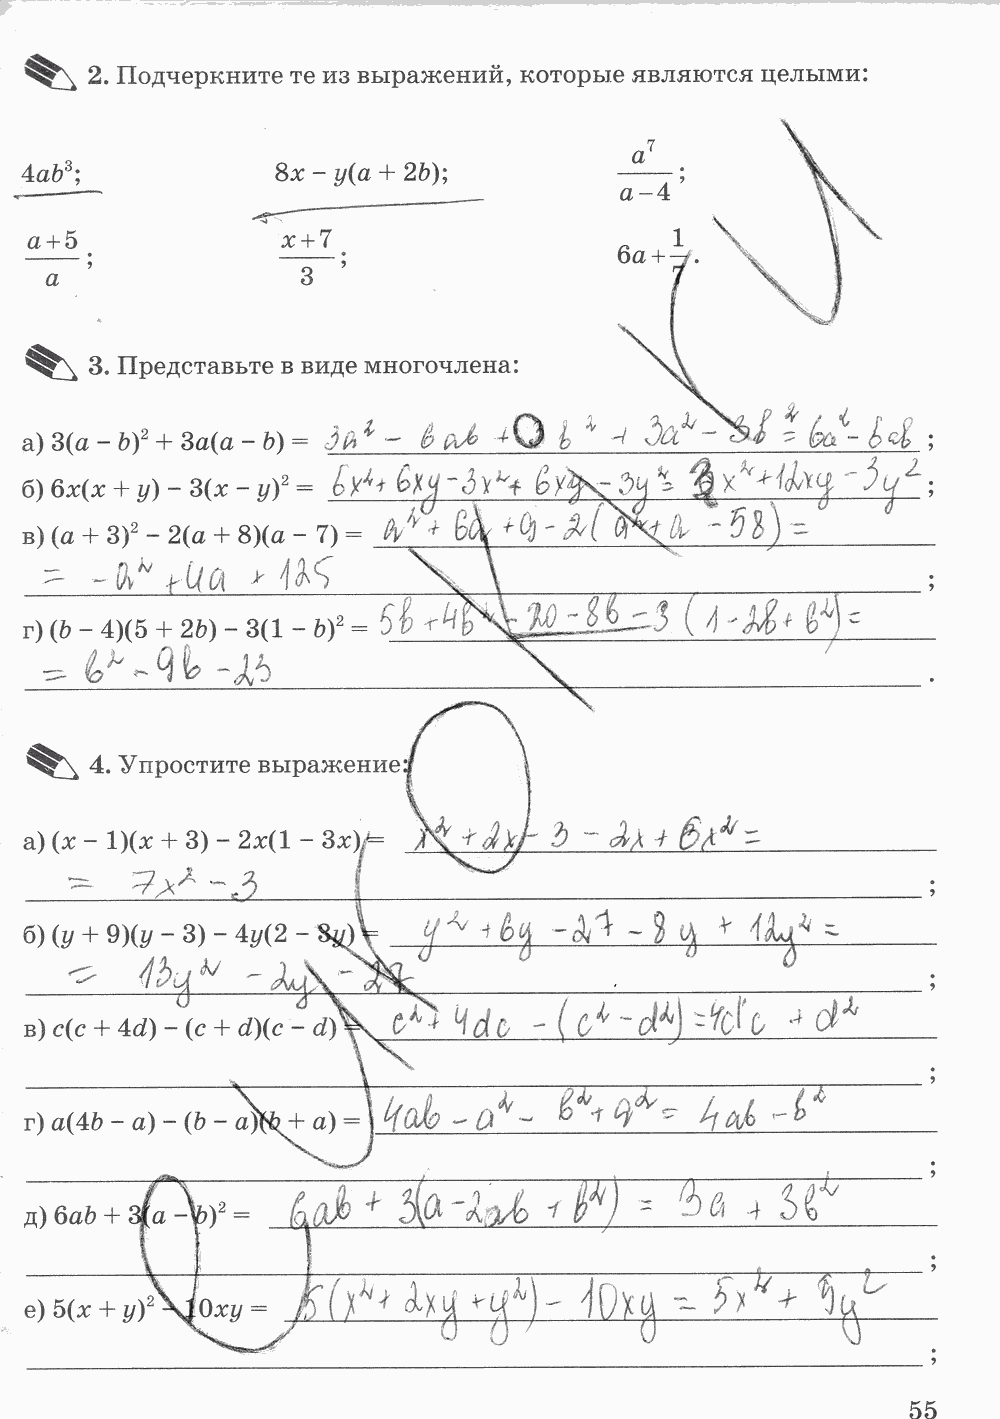 2. Подчеркните те из выражений, которые являются целыми:
4ab³; 8x − y(a + 2b); a⁷/(a − 4);
(a + 5)/a; (x + 7)/3; 6a + 1/7.
3. Представьте в виде многочлена:
а) 3(a − b)² + 3a(a − b) = 3a² − 6ab + 3b² + 3a² − 3b² = 6a² − 6ab ;
б) 6x(x + y) − 3(x − y)² = 6x² + 6xy − 3x² + 6xy − 3y² = 3x² + 12xy − 3y² ;
в) (a + 3)² − 2(a + 8)(a − 7) = a² + 6a + 9 − 2(a² + a − 58) =
= −a² + 4a + 125 ;
г) (b − 4)(5 + 2b) − 3(1 − b)² = 5b + 4b² − 20 − 8b − 3(1 − 2b + b²) =
= b² − 9b − 23 .
4. Упростите выражение:
а) (x − 1)(x + 3) − 2x(1 − 3x) = x² + 2x − 3 − 2x + 6x² =
= 7x² − 3 ;
б) (y + 9)(y − 3) − 4y(2 − 3y) = y² + 6y − 27 − 8y + 12y² =
= 13y² − 2y − 27 ;
в) c(c + 4d) − (c + d)(c − d) = c² + 4dc − (c² − d²) = 4dc + d²
;
г) a(4b − a) − (b − a)(b + a) = 4ab − a² − b² + a² = 4ab − b²
;
д) 6ab + 3(a − b)² = 6ab + 3(a − 2ab + b²) = 3a + 3b²
;
е) 5(x + y)² − 10xy = 5(x² + 2xy + y²) − 10xy = 5x² + 5y²
;
55